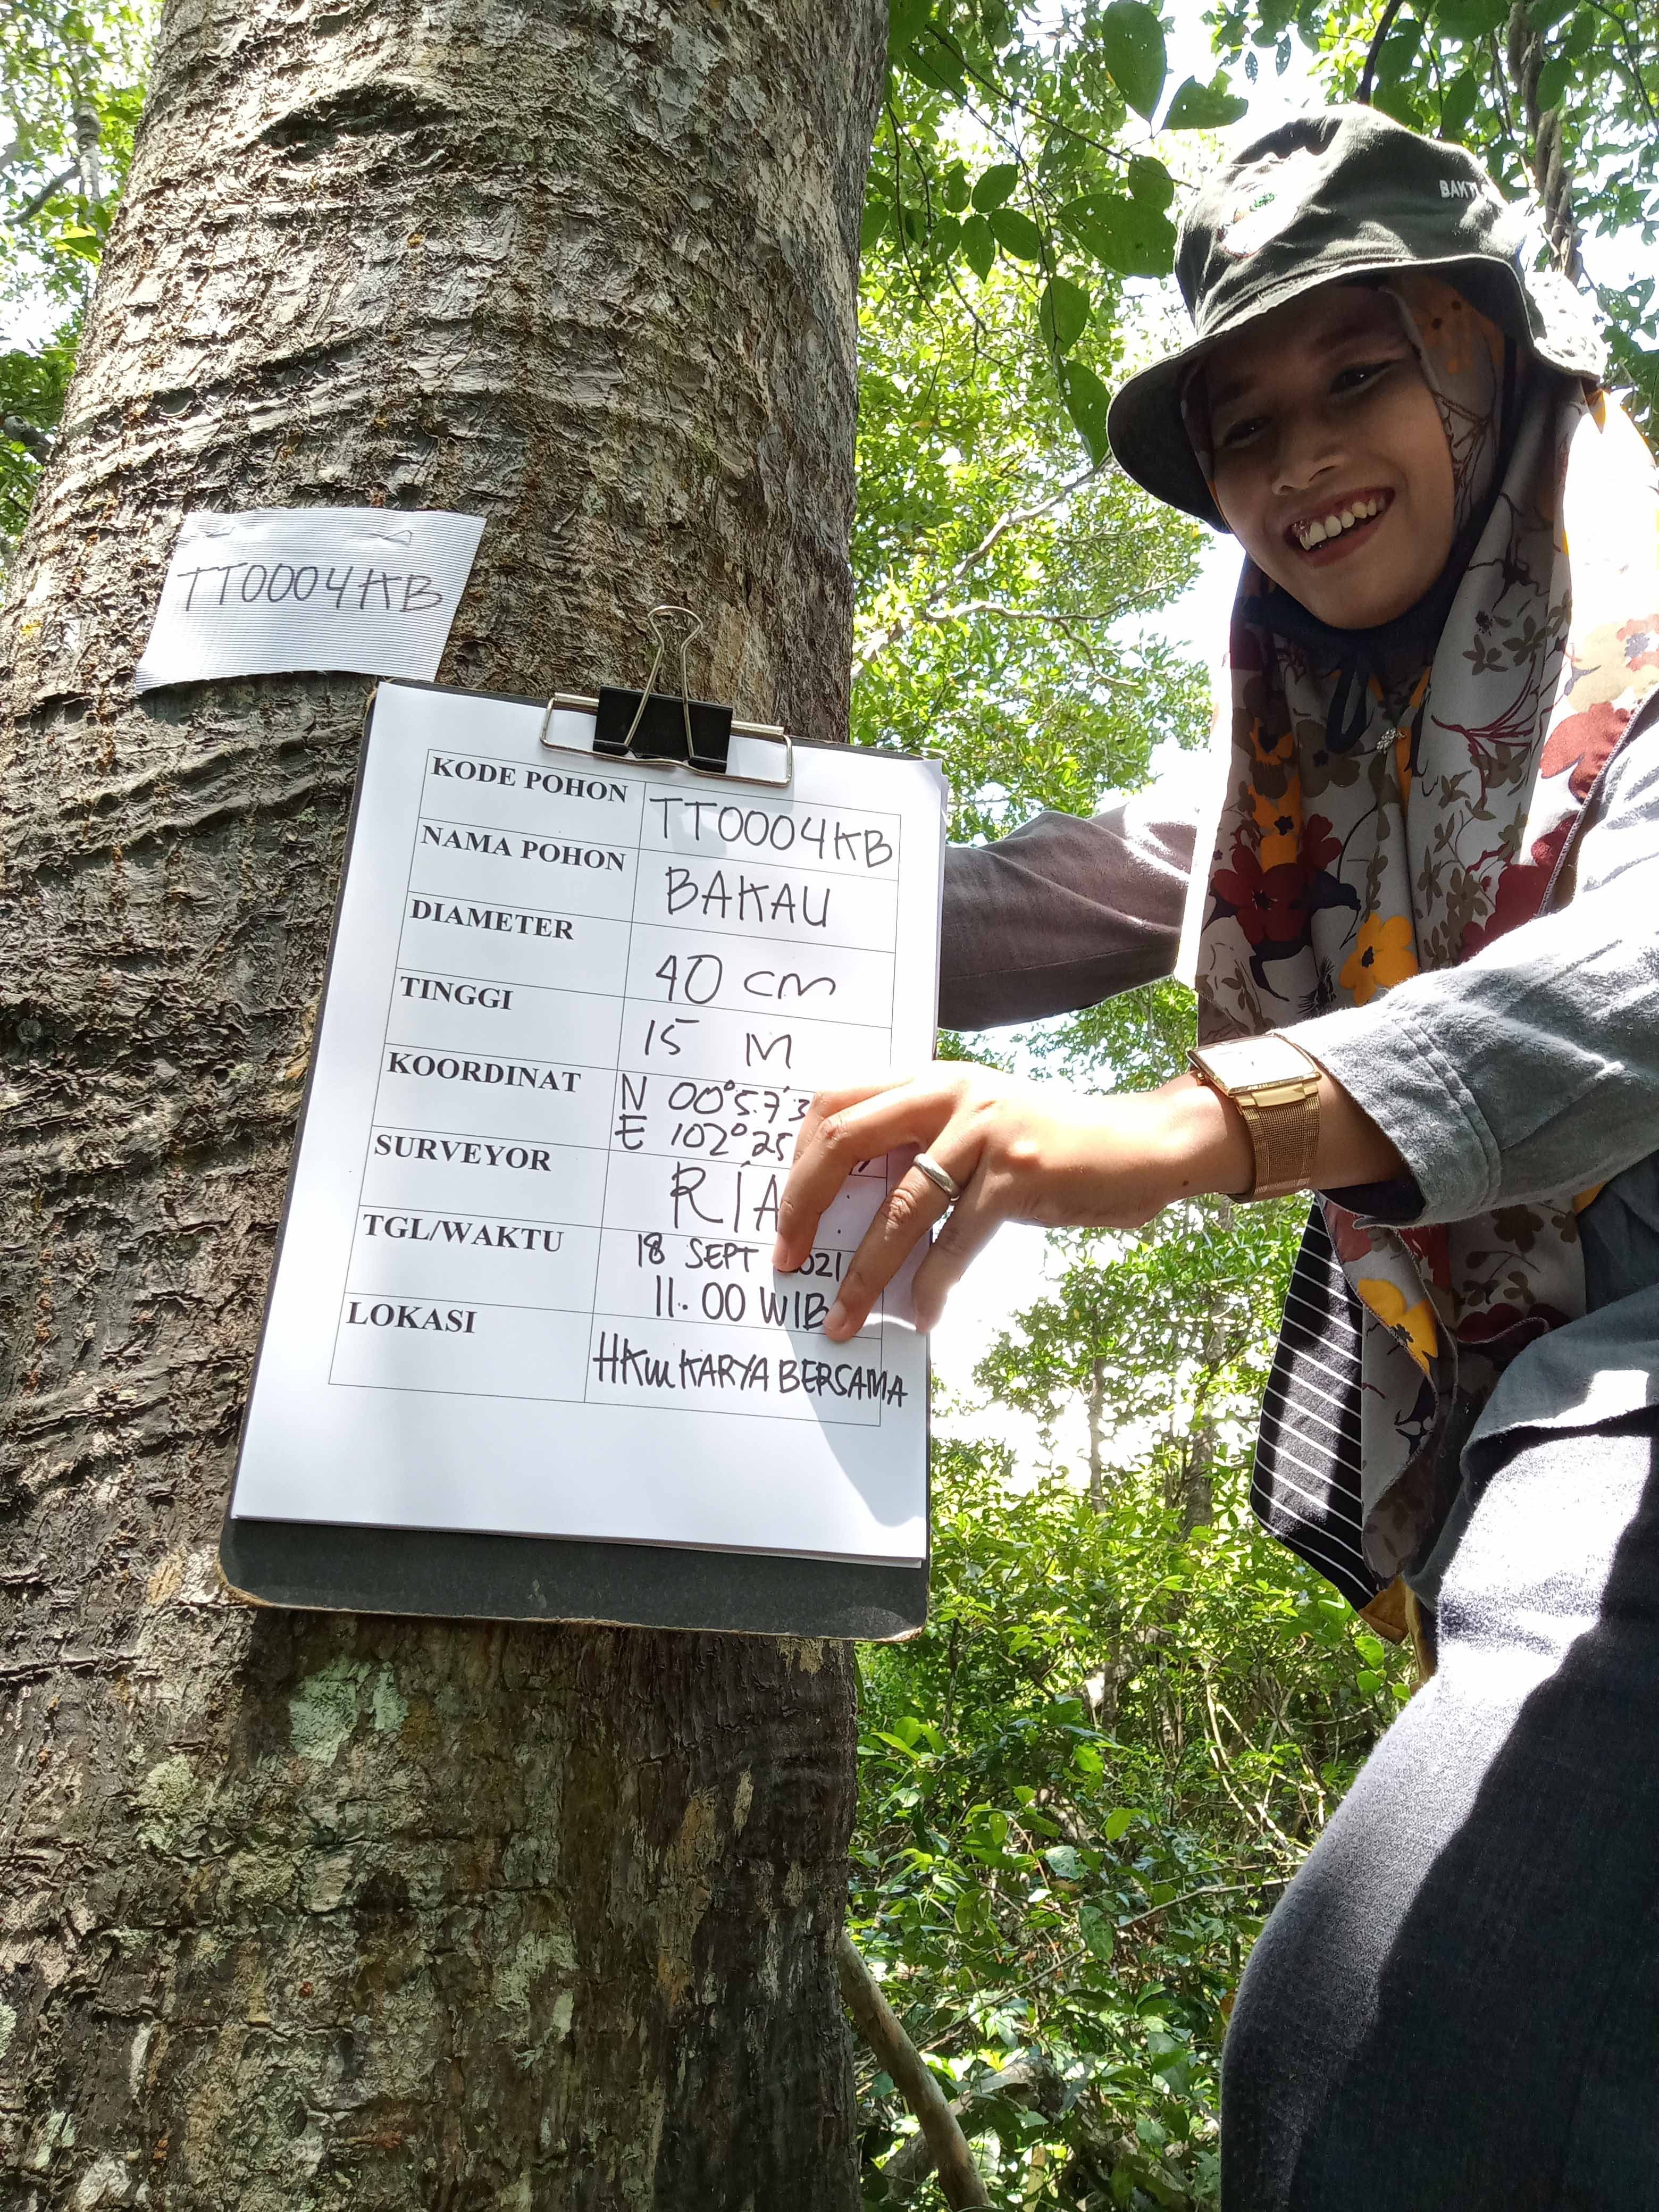 BAKTI
TT0004KB
KODE POHON TT0004KB
NAMA POHON BAKAU
DIAMETER 40 cm
TINGGI 15 M
KOORDINAT N 00°57'3
E 102°25
SURVEYOR RIA
TGL/WAKTU 18 SEPT 2021
11.00 WIB
LOKASI HKm KARYA BERSAMA